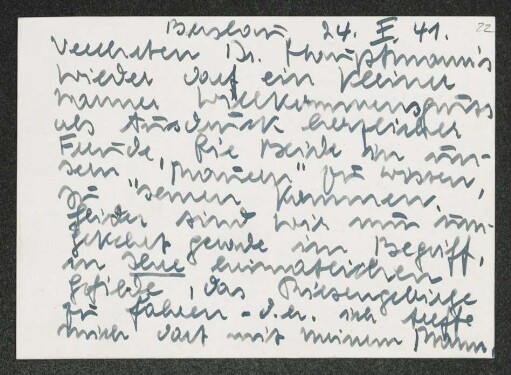 Breslau, 24. X. 41. 22
Verehrten Dr. Hauptmann's
wieder darf ein kleiner
warmer Willkommensgruss
als Ausdruck herzlicher
Freude, Sie beide in un-
sern "Mauern" zu wissen,
zu Ihnen kommen.
Leider sind wir nun um-
gekehrt gerade im Begriff,
in Ihre heimatlichen
Gefilde, das Riesengebirge
zu fahren - d.h. ich treffe
mich dort mit meinem Mann,